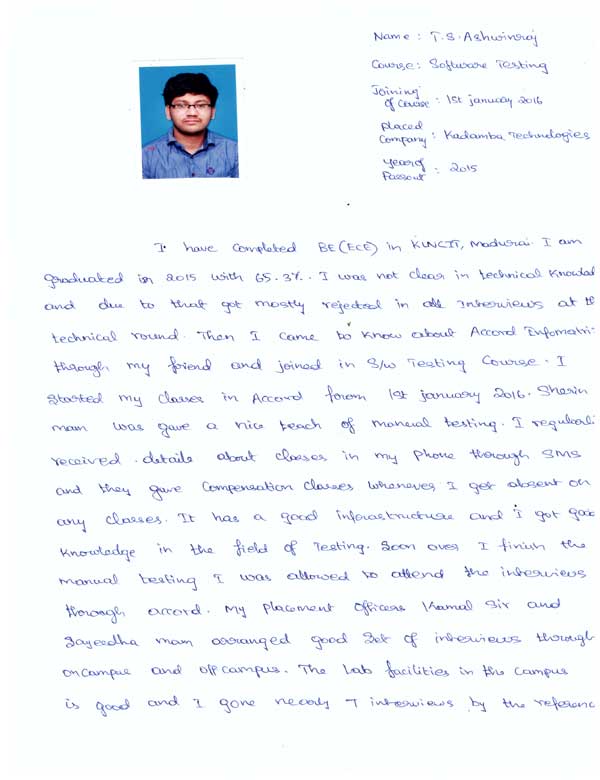 Name : T.S. Ashwinraj
Course : Software Testing
Joining
of Course : 1st january 2016
Placed
Company : Kadamba Technologies
year of
Passout : 2015
I have completed BE(ECE) in KLNCIT, Madurai. I am
graduated in 2015 with 65.3%. I was not clear in technical Knowled
and due to that got mostly rejected in all Interviews at th
technical round. Then I came to know about Accord Infomati
through my friend and joined in S/W Testing Course. I
started my classes in Accord forom 1st january 2016. Sherin
mam was gave a nice teach of manual testing. I regularl
received details about classes in my phone through SMS
and they gave compensation classes whenever I get absent on
any classes. It has a good inforastructure and I got goo
knowledge in the field of Testing. Soon over I finish the
manual testing I was allowed to attend the interviews
thorough accord. My placement officers Kamal Sir and
Sayeedha mam arranged good set of interviews through
oncampus and off campus. The Lab facilities in the campus
is good and I gone nearly 7 interviews by the referenc